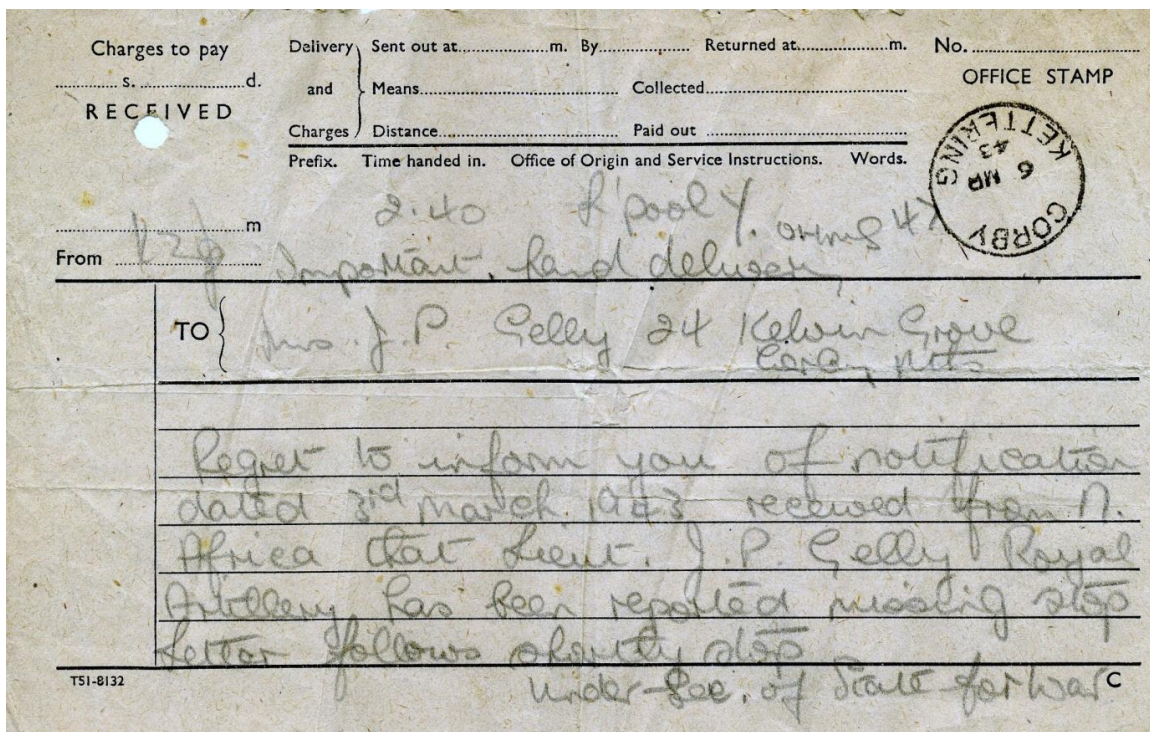 Charges to pay
.......... s. .......... d.
RECEIVED
Delivery and Charges
Sent out at..........m. By.......... Returned at..........m.
Means.......... Collected..........
Distance.......... Paid out ..........
No. ..........
OFFICE STAMP
CORBY KETTERING
6 MR
43
Prefix. Time handed in. Office of Origin and Service Instructions. Words.
2.40 L'pool Y. 47
.......... m
From ..........
Important. hand delivery
TO
Mrs. J. P. Gelly 24 Kelvin Grove
Corby Nts
Regret to inform you of notification
dated 3rd March 1943 received from N.
Africa that Lieut. J. P. Gelly Royal
Artillery has been reported missing stop
Letter follows shortly stop
Under-Sec. of State for War
T51-8132
C